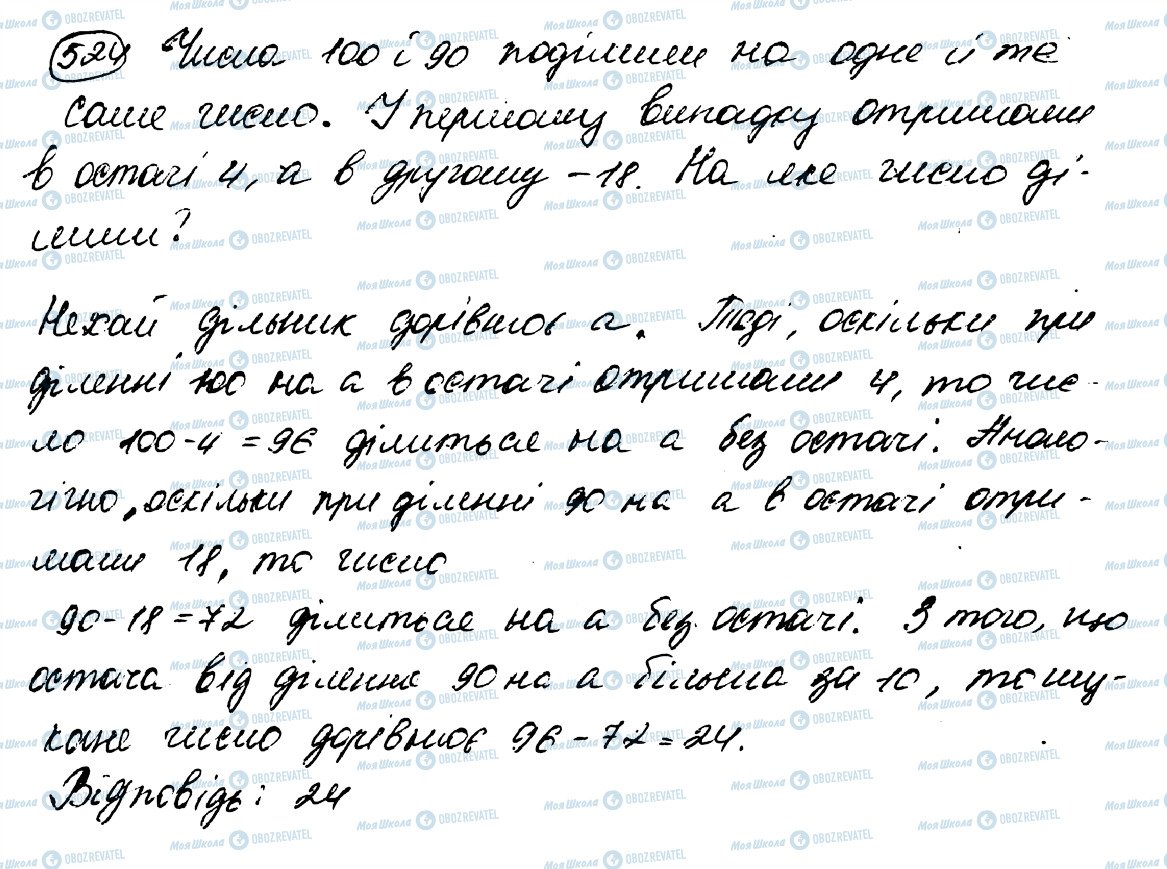 524 Числа 100 і 90 поділили на одне й те
саме число. У першому випадку отримали
в остачі 4, а в другому – 18. На яке число ді-
лили?
Нехай дільник дорівнює а. Тоді, оскільки при
діленні 100 на а в остачі отримали 4, то чис-
ло 100-4=96 ділиться на а без остачі. Анало-
гічно, оскільки при діленні 90 на а в остачі отри-
мали 18, то число
90-18=72 ділиться на а без остачі. З того, що
остача від ділення 90 на а більша за 10, то шу-
кане число дорівнює 96-72=24.
Відповідь: 24